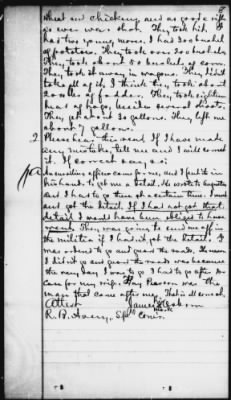 wheat and chickens, and as good a rifle
as ever was shot. They took
has they young mare. I had 30 bushels
of potatoes. They took over 20 bushels
They took about 50 bushels of corn.
They took it away in wagons. They didn't
take all of it, I think they took about
20 lbs of fodder. They took eighteen
head of hogs, besides several shoats.
They got about 30 gallons. They left me
about 7 gallons.
2. Please hear this read. If I have made
any mistake, tell me and I will correct
it. If correct say so:
An enrolling officer came for me, and I put it in
his hands to get me a detail. He wrote to Augusta
and I had to go there at a certain time. I went
and got the detail. If I had not got that
detail I would have been obliged to have
went. They was going to send me off in
the militia if I hadn't got the detail. I
was ordered to go and guard the roads. He never
I didn't go and guard the roads was because
the very day I was to go I had to go after Dr
Cain for my wife. Pearson was the
man that came after me. That is all correct.
Attest James his mark
R. B. Avery, Spl Comr.